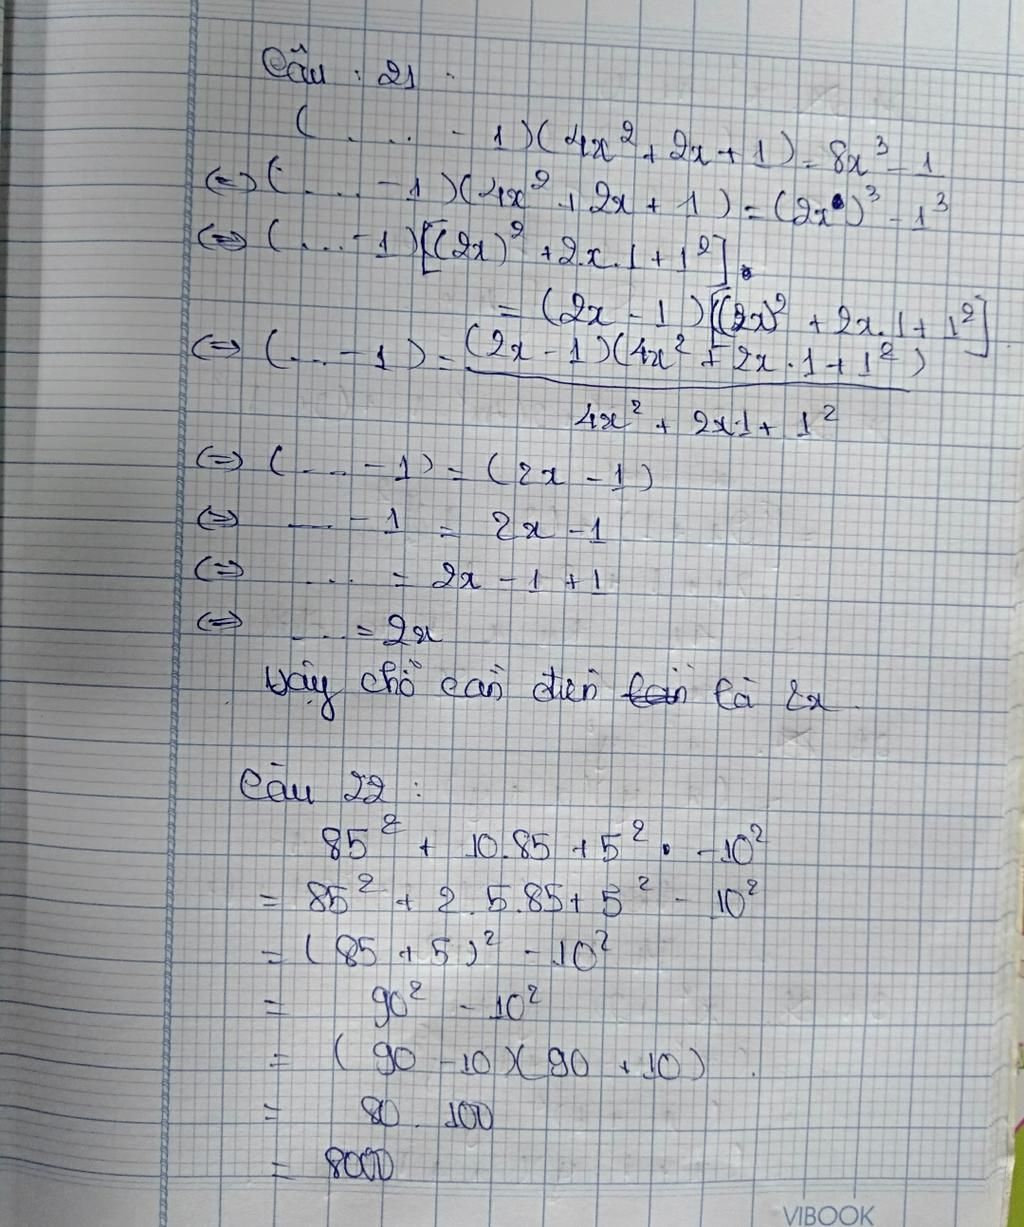 Câu : 21 .
( . . . . . - 1)(4x² + 2x + 1) = 8x³ - 1
<=> ( . . . . - 1)(4x² + 2x + 1) = (2x)³ - 1³
<=> (....-1)[(2x)² + 2x.1 + 1²]
= (2x - 1)[(2x)² + 2x.1 + 1²]
<=> (....-1) = (2x - 1)(4x² + 2x . 1 + 1²)
4x² + 2x1 + 1²
<=> (....-1) = (2x - 1)
<=> .... - 1 = 2x - 1
<=> .... = 2x - 1 + 1
<=> .... = 2x
Vậy chỗ cần điền là 2x
Câu 22 :
85² + 10.85 + 5² - 10²
= 85² + 2.5.85 + 5² - 10²
= (85 + 5)² - 10²
= 90² - 10²
= (90 - 10)(90 + 10)
= 80 . 100
= 8000
VIBOOK